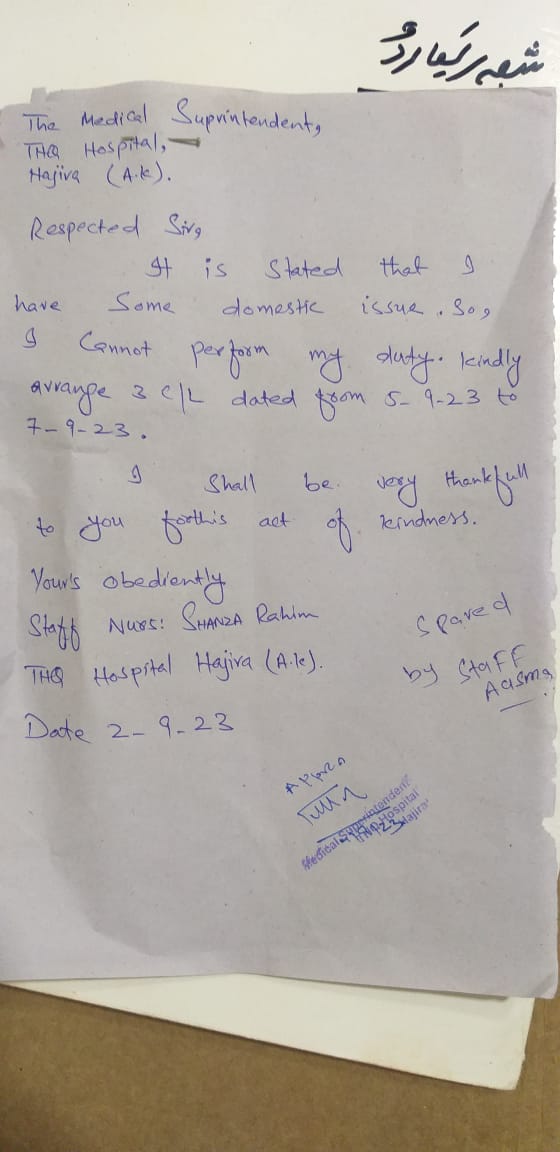 شعبہ ریکارڈ
The Medical Suprintendent,
THQ Hospital,
Hajira (A.k).
Respected Sir,
It is Stated that I
have Some domestic issue. So,
I Cannot perform my duty. kindly
arrange 3 C/L dated from 5-9-23 to
7-9-23.
I Shall be very thankfull
to you forthis act of kindness.
Your's obediently
Staff Nurs: SHANZA Rahim
THQ Hospital Hajira (A.k).
Date 2-9-23
Spared
by STAFF
Aasma
Medical Superintendent
THQ Hospital
Hajira